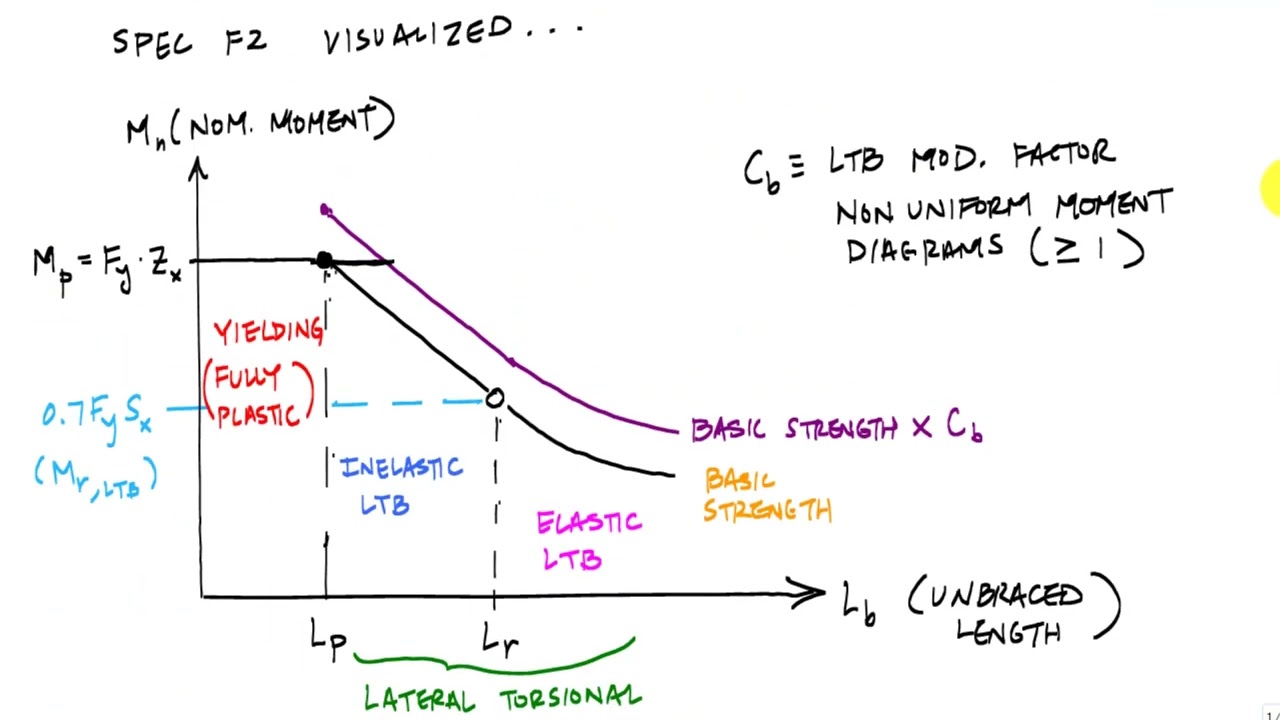 SPEC F2 VISUALIZED...
Mn (NOM. MOMENT)
Cb ≡ LTB MOD. FACTOR
NON UNIFORM MOMENT
DIAGRAMS (≥ 1)
Mp = Fy · Zx
YIELDING
(FULLY
PLASTIC)
0.7FySx
(Mr,LTB)
INELASTIC
LTB
BASIC STRENGTH X Cb
BASIC
STRENGTH
ELASTIC
LTB
Lb (UNBRACED
LENGTH)
Lp
Lr
LATERAL TORSIONAL